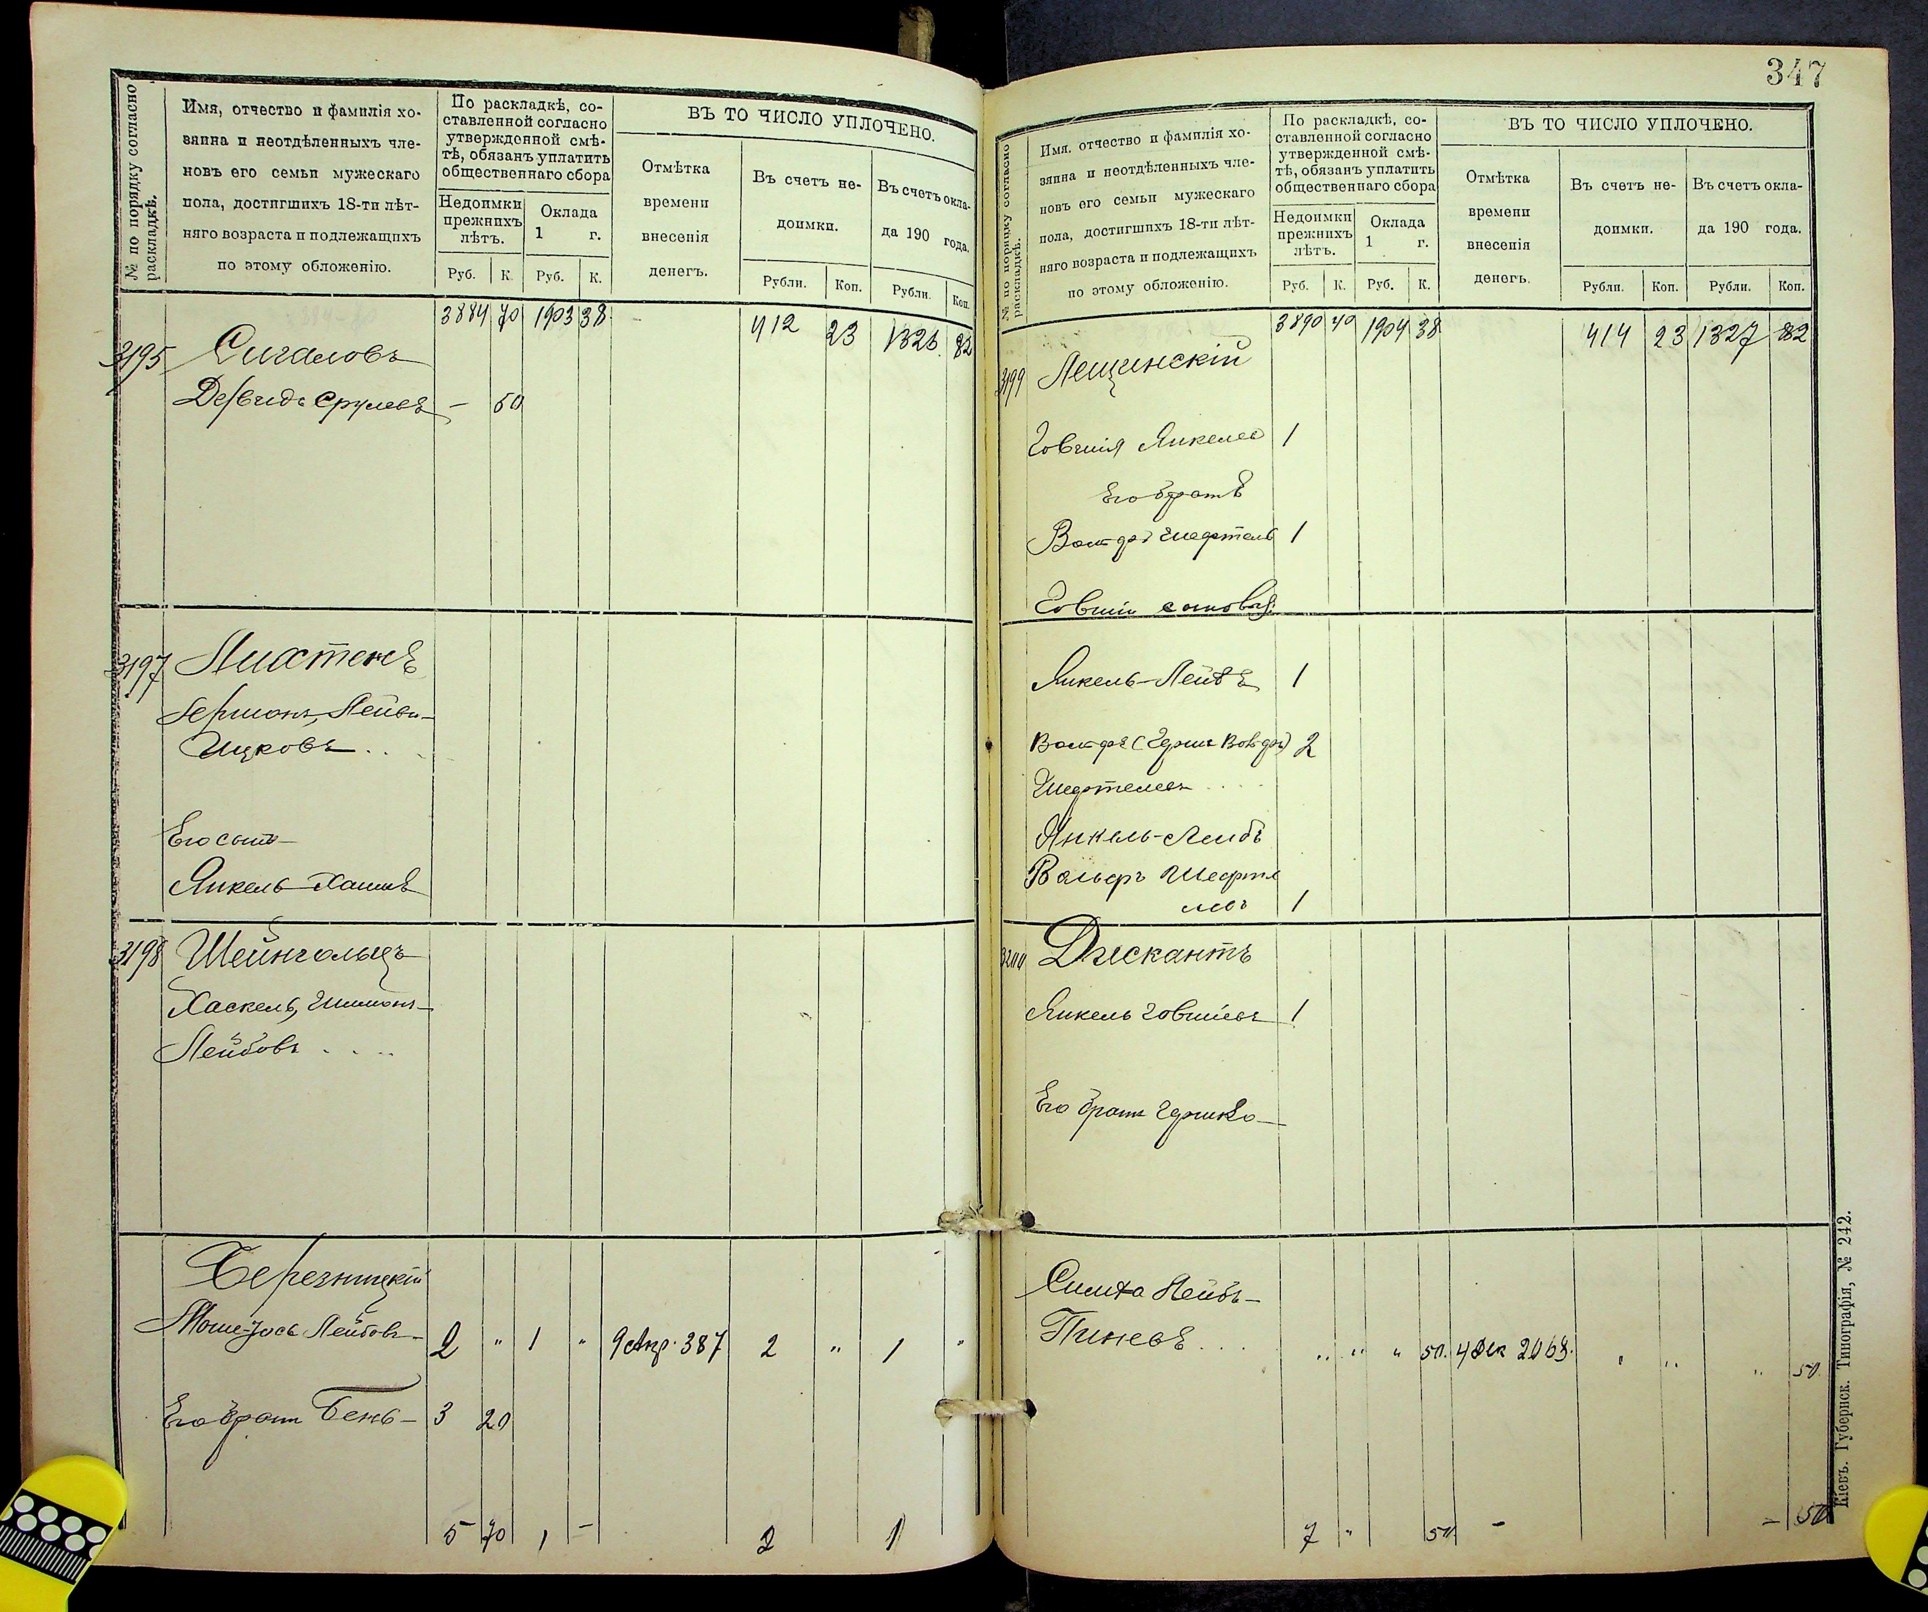 № по порядку согласно раскладкѣ.
Имя, отчество и фамилія хо-
зяина и неотдѣленныхъ чле-
новъ его семьи мужескаго
пола, достигшихъ 18-ти лѣт-
няго возраста и подлежащихъ
по этому обложенію.
По раскладкѣ, со-
ставленной согласно
утвержденной смѣ-
тѣ, обязанъ уплатить
общественнаго сбора
Недоимки
прежнихъ
лѣтъ.
Оклада
1 г.
Руб. К. Руб. К.
ВЪ ТО ЧИСЛО УПЛОЧЕНО.
Отмѣтка
времени
внесенія
денегъ.
Въ счетъ не-
доимки.
Въ счетъ окла-
да 190 года.
Рубли. Коп. Рубли. Коп.
3884 70 1903 38 - 412 23 1326 82
3195 Сигаловъ
Дувидъ Срулевъ - 50
3197 Лихтенъ
Гершонъ, Лейви-
Ицковъ . .
Его сынъ-
Янкель-Хаимъ
3198 Шейнгольцъ
Хаскель, Шимонъ-
Лейбовъ . . . .
Березницкій
Моше-Іось Лейбовъ- 2 " 1 " 9 Апр. 387 2 " 1 "
Его братъ Бень- 3 20
5 70 1 - 2 1
347
№ по порядку согласно раскладкѣ.
Имя, отчество и фамилія хо-
зяина и неотдѣленныхъ чле-
новъ его семьи мужескаго
пола, достигшихъ 18-ти лѣт-
няго возраста и подлежащихъ
по этому обложенію.
По раскладкѣ, со-
ставленной согласно
утвержденной смѣ-
тѣ, обязанъ уплатить
общественнаго сбора
Недоимки
прежнихъ
лѣтъ.
Оклада
1 г.
Руб. К. Руб. К.
ВЪ ТО ЧИСЛО УПЛОЧЕНО.
Отмѣтка
времени
внесенія
денегъ.
Въ счетъ не-
доимки.
Въ счетъ окла-
да 190 года.
Рубли. Коп. Рубли. Коп.
3890 40 1904 38 414 23 1327 82
3199 Лещинскій
Говшія Янкелев 1
Его братъ
Вольфъ Шефтель 1
Говшіи сыновья:
Янкель-Лейбъ 1
Вольфъ (Герш Вовфъ) 2
Шефтелевъ . . . .
Янкель-Лейбъ
Вольфъ Шефте
левъ 1
3200 Дискантъ
Янкель Говшіевъ 1
Его братъ Гершко-
Симха Лейбъ-
Пиневъ . . . " " " 50. 4 Дек 2063. " " " 50.
7 " 50 - - 50
Кіевъ. Губернск. Типографія, № 242.